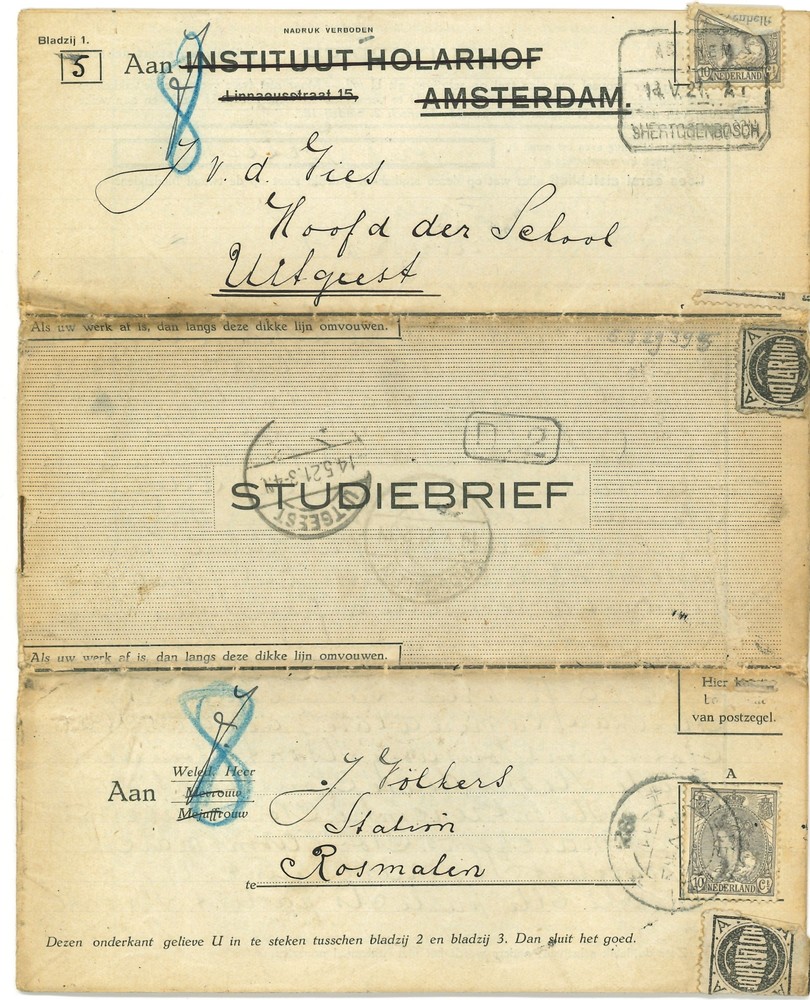 NADRUK VERBODEN
Bladzij 1.
5
Aan INSTITUUT HOLARHOF
Linnaeusstraat 15,
AMSTERDAM.
10 NEDERLAND Ct
V. 21
SHERTOGENBOSCH
J v. d. Gies
Hoofd der School
Uitgeest
Als uw werk af is, dan langs deze dikke lijn omvouwen.
HOLARHOF
14.5.21.3-4N
UITGEEST
STUDIEBRIEF
Als uw werk af is, dan langs deze dikke lijn omvouwen.
Hier
van postzegel.
8
Weled. Heer
Aan Mevrouw
Mejuffrouw
J Volkers
Station
te Rosmalen
A
10 NEDERLAND Ct
Dezen onderkant gelieve U in te steken tusschen bladzij 2 en bladzij 3. Dan sluit het goed.
HOLARHOF